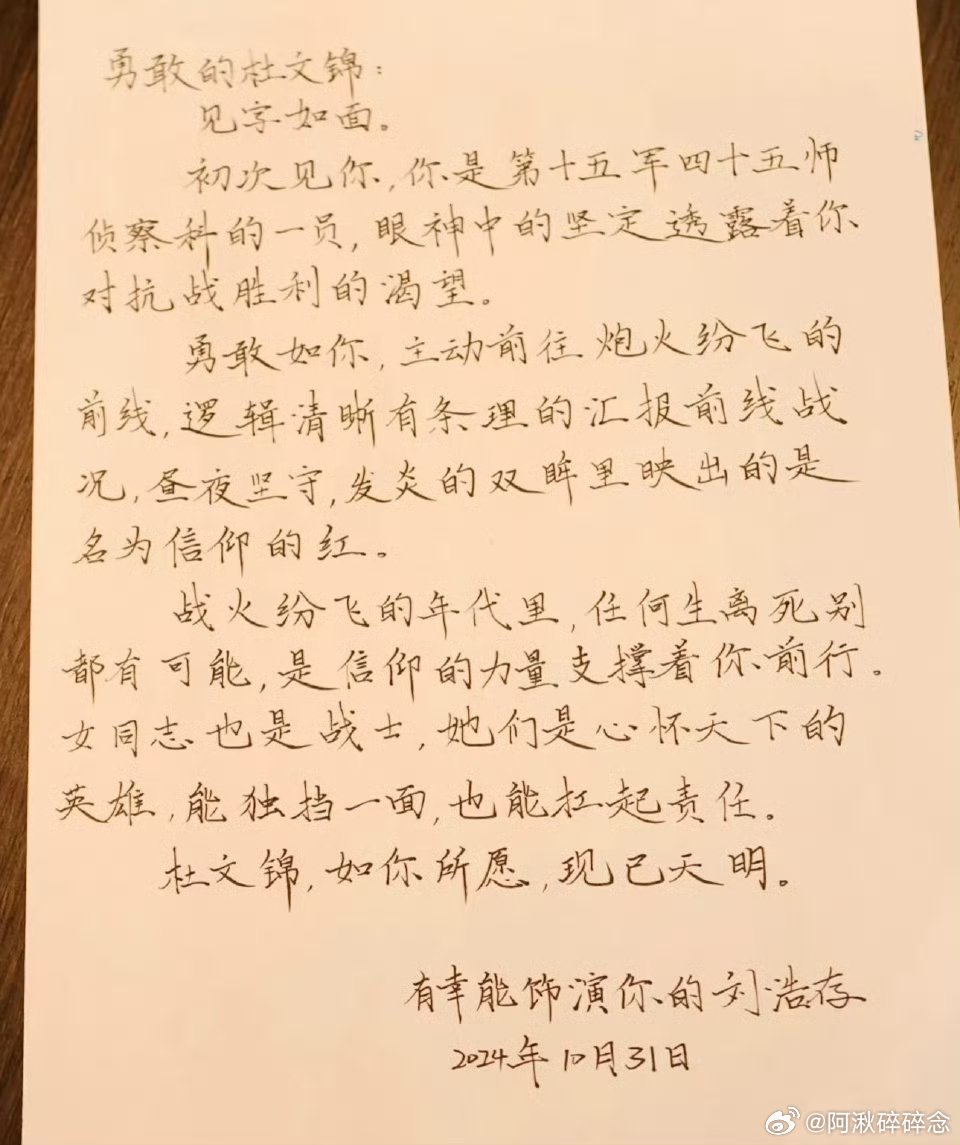 勇敢的杜文锦：
见字如面。
初次见你，你是第十五军四十五师
侦察科的一员，眼神中的坚定透露着你
对抗战胜利的渴望。
勇敢如你，主动前往炮火纷飞的
前线，逻辑清晰有条理的汇报前线战
况，昼夜坚守，发炎的双眸里映出的是
名为信仰的红。
战火纷飞的年代里，任何生离死别
都有可能，是信仰的力量支撑着你前行。
女同志也是战士，她们是心怀天下的
英雄，能独挡一面，也能扛起责任。
杜文锦，如你所愿，现已天明。
有幸能饰演你的刘浩存
2024年10月31日
@阿湫碎碎念